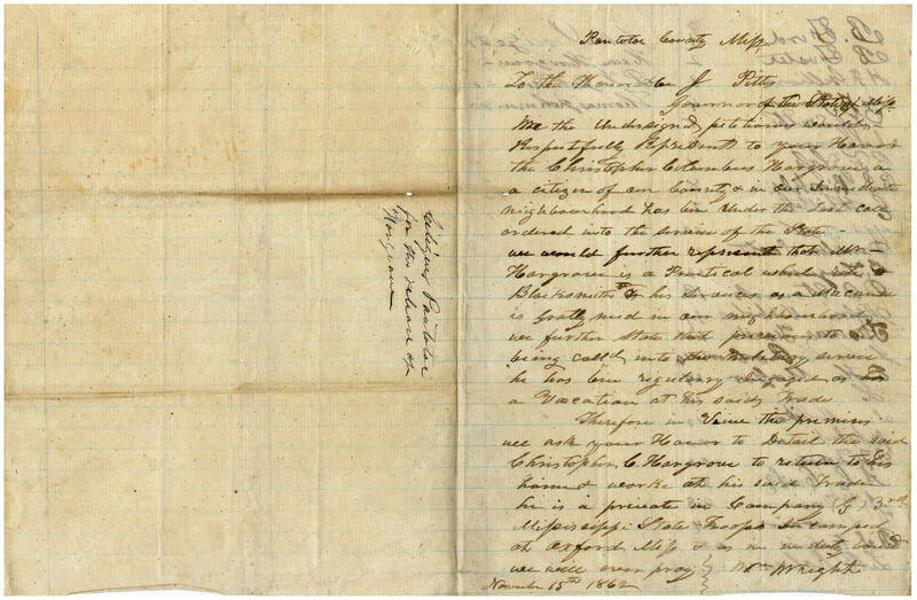 Pontotoc County Miss
To the Honorable J Pittis
Governor of the State of Miss
We the Undersigned petitioners would
Respectfully Represent to your Honor
the Christopher Columbus Hargrove is
a citizen of our County & in our immediate
neighbourhood has been Under the last call
ordered into the service of the State -
we would further represent that Mr -
Hargrove is a Practical wheel
Blacksmith & his services as a
is Gratly need in our neighbourhood
we further State that previous to
being calld into Military service
he has been regularly engaged as
a Vocation at his said trade
Therefore in View the premises
we ask your Honor to Detail the said
Christopher C. Hargrove to return to his
home & work at his said Trade
he is a private in Company (G) 3rd
Mississippi State Troops
at Oxford Miss & as we in duty bound
we will ever pray Wm Wright
November 15th 1862
Citizens Pontotoc
for the release of
Hargrove